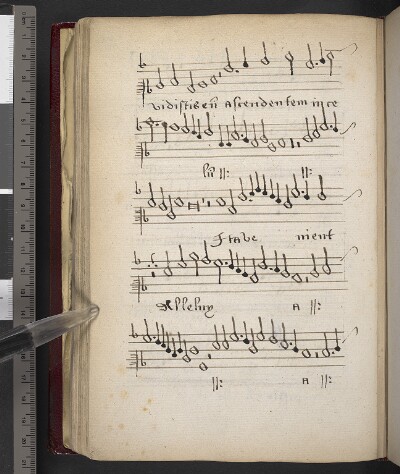 vidistis eū Ascendentem in ce
lū ||:  ||:
Ita ve nient
Alleluy a ||:
||: a ||: